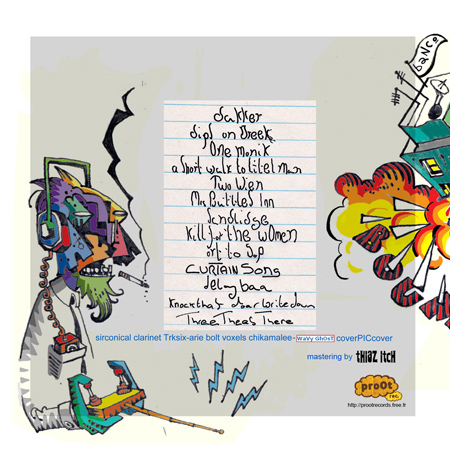 DANCE
Jakker
Digs on Greek
One Monik
a short walk to litel man
Two Wen
Mrs Buttles Inn
Sandlidge
Kill for the women
ort to Dup
CURTAIN SONG
Delmy baa
Knock that door write down
Twee Trees There
sirconical clarinet Trksix-arie bolt voxels chikamalee- Wavy Ghost coverPICcover
mastering by thiaz itch
proOt
rec.
http://prootrecords.free.fr